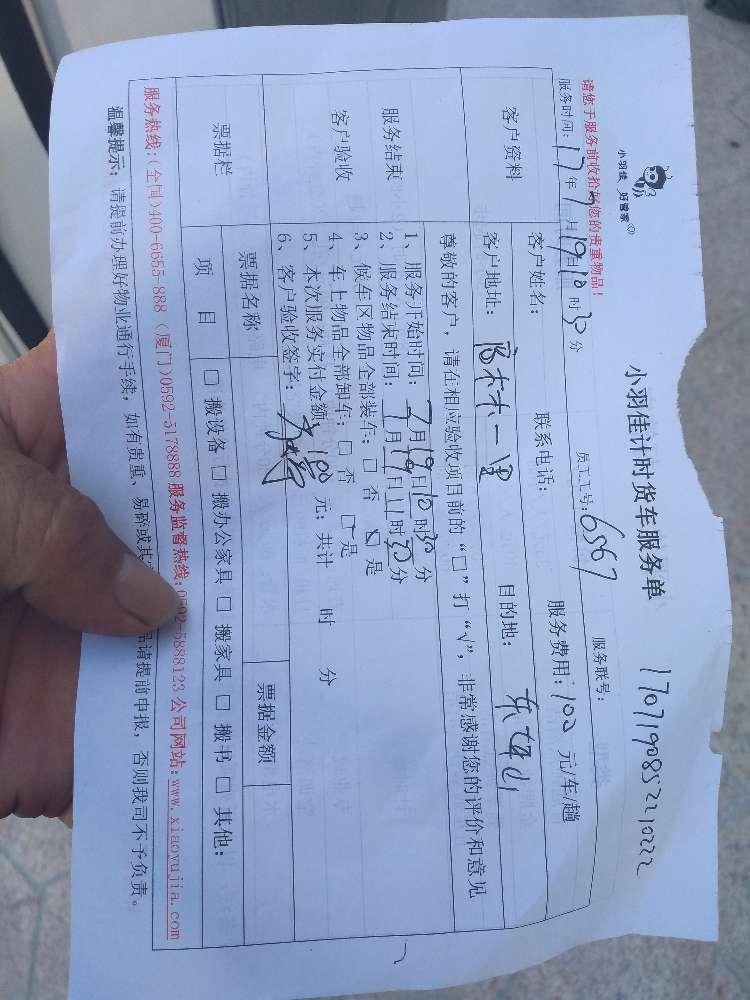 小羽佳 好管家®
小羽佳计时货车服务单
1707190852210222
请您于服务前收拾好您的贵重物品！
员工工号：6567
服务联号：
服务时间：17年7月19日10时30分
客户资料
客户姓名：
联系电话：
服务费用：100元/车/趟
客户地址：
目的地：
尊敬的客户，请在相应验收项目前的“□”打“√”，非常感谢您的评价和意见
服务结束
客户验收
1、服务开始时间：7月19日10时30分
2、服务结束时间：7月19日11时30分
3、候车区物品全部装车：□ 否 ☑ 是
4、车上物品全部卸车：□ 否 □ 是
5、本次服务实付金额：100元；共计 时 分
6、客户验收签字：
票据栏
票据名称
票据金额
项 目
□ 搬设备 □ 搬办公家具 □ 搬家具 □ 搬书 □ 其他：
服务热线：(全国)400-6655-888 (厦门)0592-5178888 服务监督热线：0592-5888123 公司网站：www.xiaoyujia.com
温馨提示：请提前办理好物业通行手续，如有贵重、易碎或其 品请提前申报，否则我司不予负责。